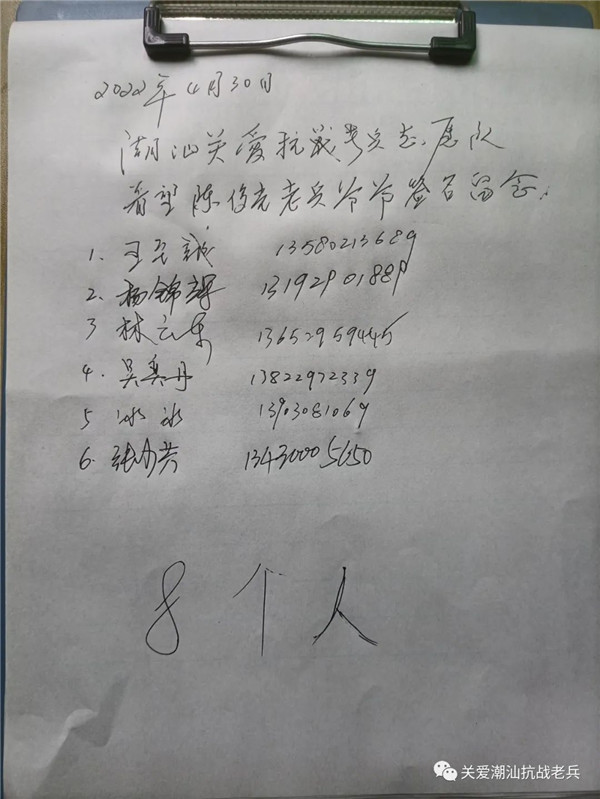 2022年4月30日
潮汕关爱抗战老兵志愿队
看望陈俊光老兵爷爷签名留念:
1. 王 诚 13580213689
2. 杨锦 13192901889
3 林云东 13652959445
4. 吴奕丹 13822972339
5 冰冰 13903081069
6. 张 13430005650
8个人
关爱潮汕抗战老兵